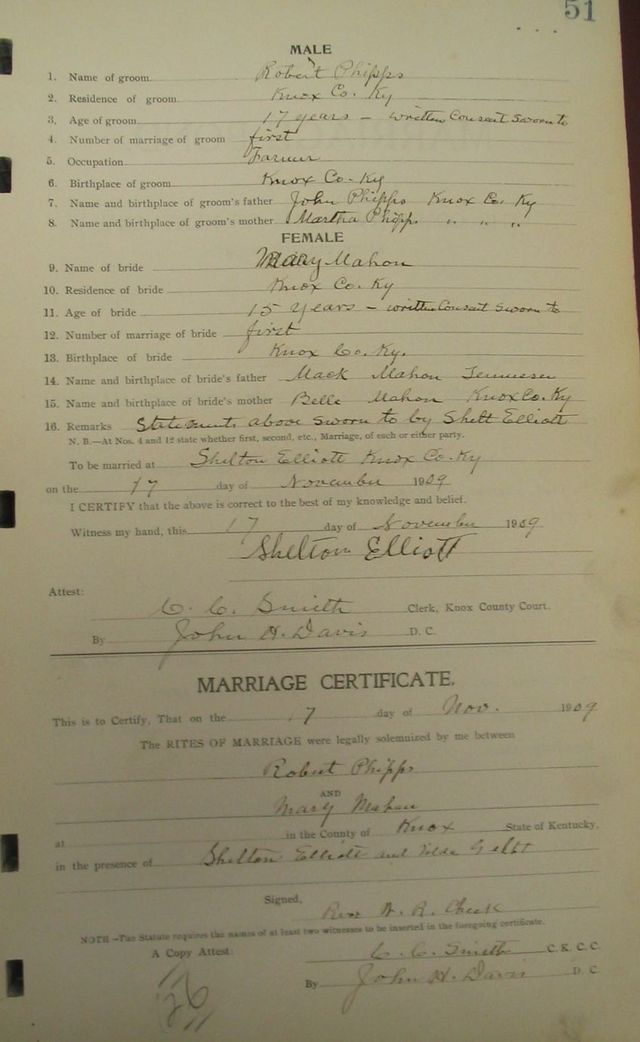 51
MALE
1. Name of groom Robert Phipps
2. Residence of groom Knox Co. Ky
3. Age of groom 17 years - written Consent Sworn to
4. Number of marriage of groom first
5. Occupation Farmer
6. Birthplace of groom Knox Co. Ky
7. Name and birthplace of groom's father John Phipps Knox Co. Ky
8. Name and birthplace of groom's mother Martha Phipps " " "
FEMALE
9. Name of bride Mary Mahon
10. Residence of bride Knox Co. Ky
11. Age of bride 15 years - written Consent Sworn to
12. Number of marriage of bride first
13. Birthplace of bride Knox Co. Ky.
14. Name and birthplace of bride's father Mack Mahon Tennessee
15. Name and birthplace of bride's mother Belle Mahon Knox Co. Ky
16. Remarks Statements above sworn to by Shelt Elliott
N. B.—At Nos. 4 and 12 state whether first, second, etc., Marriage, of each or either party.
To be married at Shelton Elliott Knox Co. Ky
on the 17 day of November 1909
I CERTIFY that the above is correct to the best of my knowledge and belief.
Witness my hand, this 17 day of November 1909
Shelton Elliott
Attest:
C. C. Smith Clerk, Knox County Court.
By John H. Davis D. C.
MARRIAGE CERTIFICATE.
This is to Certify, That on the 17 day of Nov. 1909
The RITES OF MARRIAGE were legally solemnized by me between
Robert Phipps
AND
Mary Mahon
at in the County of Knox State of Kentucky.
in the presence of Shelton Elliott and
Signed,
Rev W. R. Cheek
NOTE—The Statute requires the names of at least two witnesses to be inserted in the foregoing certificate.
A Copy Attest: C. C. Smith C. K. C. C.
By John H. Davis D. C.